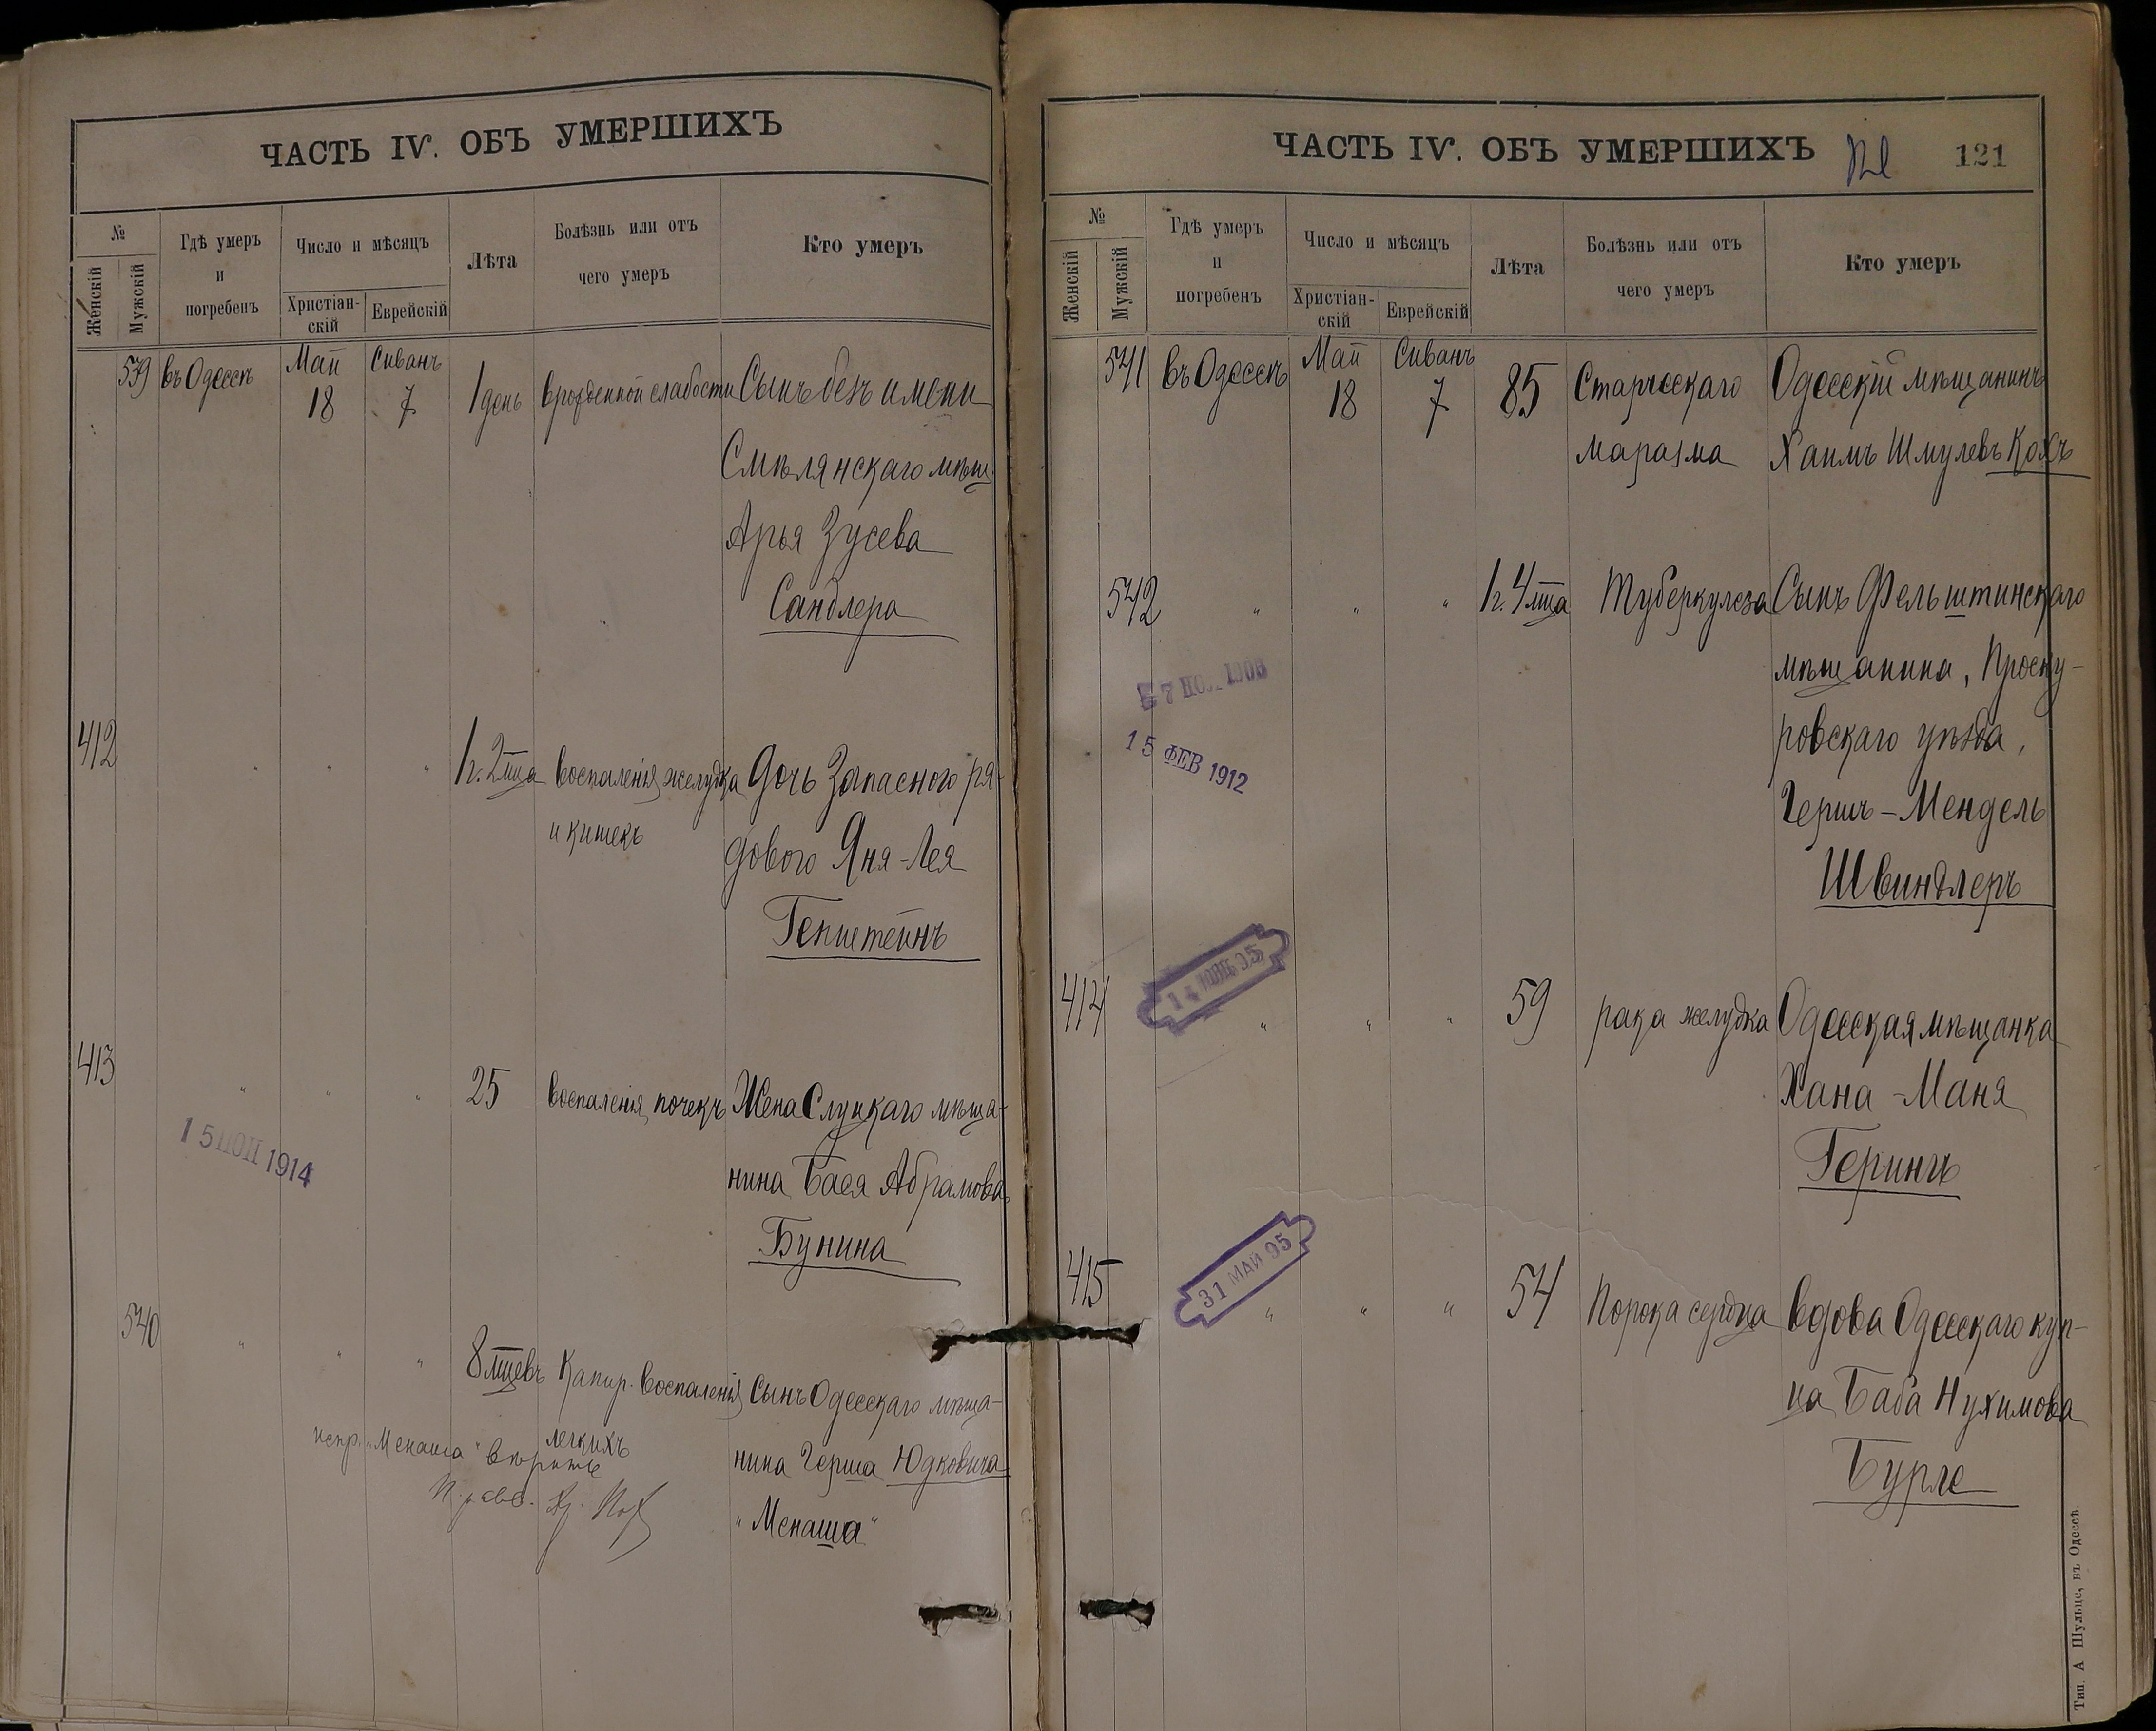 ЧАСТЬ IV. ОБЪ УМЕРШИХЪ
№
Женскій
Мужскій
Гдѣ умеръ
и
погребенъ
Число и мѣсяцъ
Христіан-
скій
Еврейскій
Лѣта
Болѣзнь или отъ
чего умеръ
Кто умеръ
539 въ Одессѣ Май 18 Сиванъ 7 1 день врожденной слабости Сынъ безъ имени
Смѣлянскаго мѣщ
Арья Зусева
Сандлера
412 " " " 1 г. 2 мца воспаленія желудка Дочь Запасного ря-
и кишекъ дового Яня-Лея
Гепштейнъ
413 " " " 25 воспаленія почекъ Жена Слуцкаго мѣща-
нина Бася Абрамова
Бунина
15 1914
540 " " " 8 мцевъ Капир. воспаленія Сынъ Одесскаго мѣща-
легкихъ нина Герша Юдковича
испр. "Менаша" вѣрить
"Менаша"
ЧАСТЬ IV. ОБЪ УМЕРШИХЪ 121
№
Женскій
Мужскій
Гдѣ умеръ
и
погребенъ
Число и мѣсяцъ
Христіан-
скій
Еврейскій
Лѣта
Болѣзнь или отъ
чего умеръ
Кто умеръ
541 въ Одессѣ Май 18 Сиванъ 7 85 Старческаго Одесскій мѣщанинъ
маразма Хаимъ Шмулевъ Кохъ
542 " " " 1 г. 4 мца Туберкулеза Сынъ Фельштинскаго
мѣщанина, Проску-
ровскаго уѣзда,
Гершъ-Мендель
Швиндлеръ
15 ФЕВ 1912
414 " " " 59 рака желудка Одесская мѣщанка
Хана-Маня
Геринъ
415 " " " 54 Порока сердца Вдова Одесскаго куп-
ца Баба Нухимова
Бурле
31 МАЙ 95
Тип. А Шульце, въ Одессѣ.